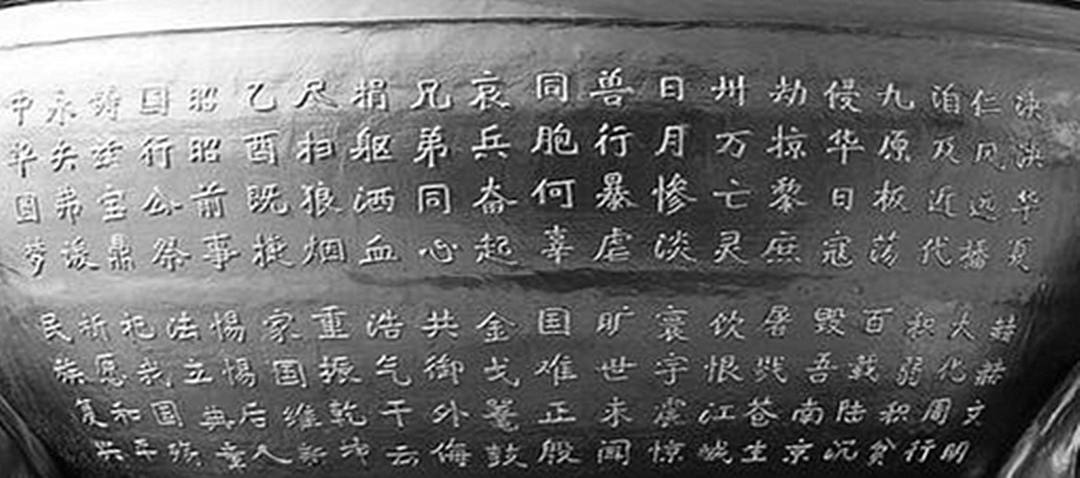 泱泱华夏 赫赫文明
仁风远播 大化周行
洎及近代 积弱积贫
九原板荡 百载陆沉
侵华日寇 毁吾南京
劫掠黎庶 屠戮苍生
卅万亡灵 饮恨江城
日月惨淡 寰宇震惊
兽行暴虐 旷世未闻
同胞何辜 国难正殷
哀兵奋起 金戈鼍鼓
兄弟同心 共御外侮
捐躯洒血 浩气干云
尺扫狼烟 重振乾坤
乙酉既捷 家国维新
昭昭前事 惕惕后人
国行公祭 法立典章
铸兹宝鼎 祀我国殇
永矢弗谖 祈愿和平
中华圆梦 民族复兴